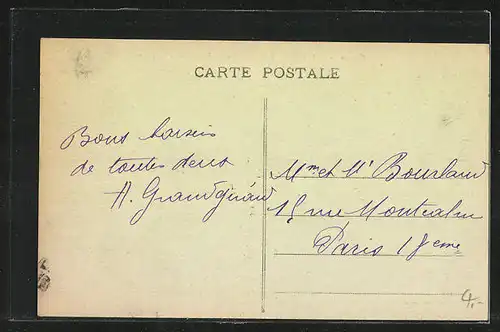 CARTE POSTALE
Bons baisers
de toutes deux
A. Grandguérand
Mme et Mr Bourland
15 rue Montcalm
Paris 18eme
4,-